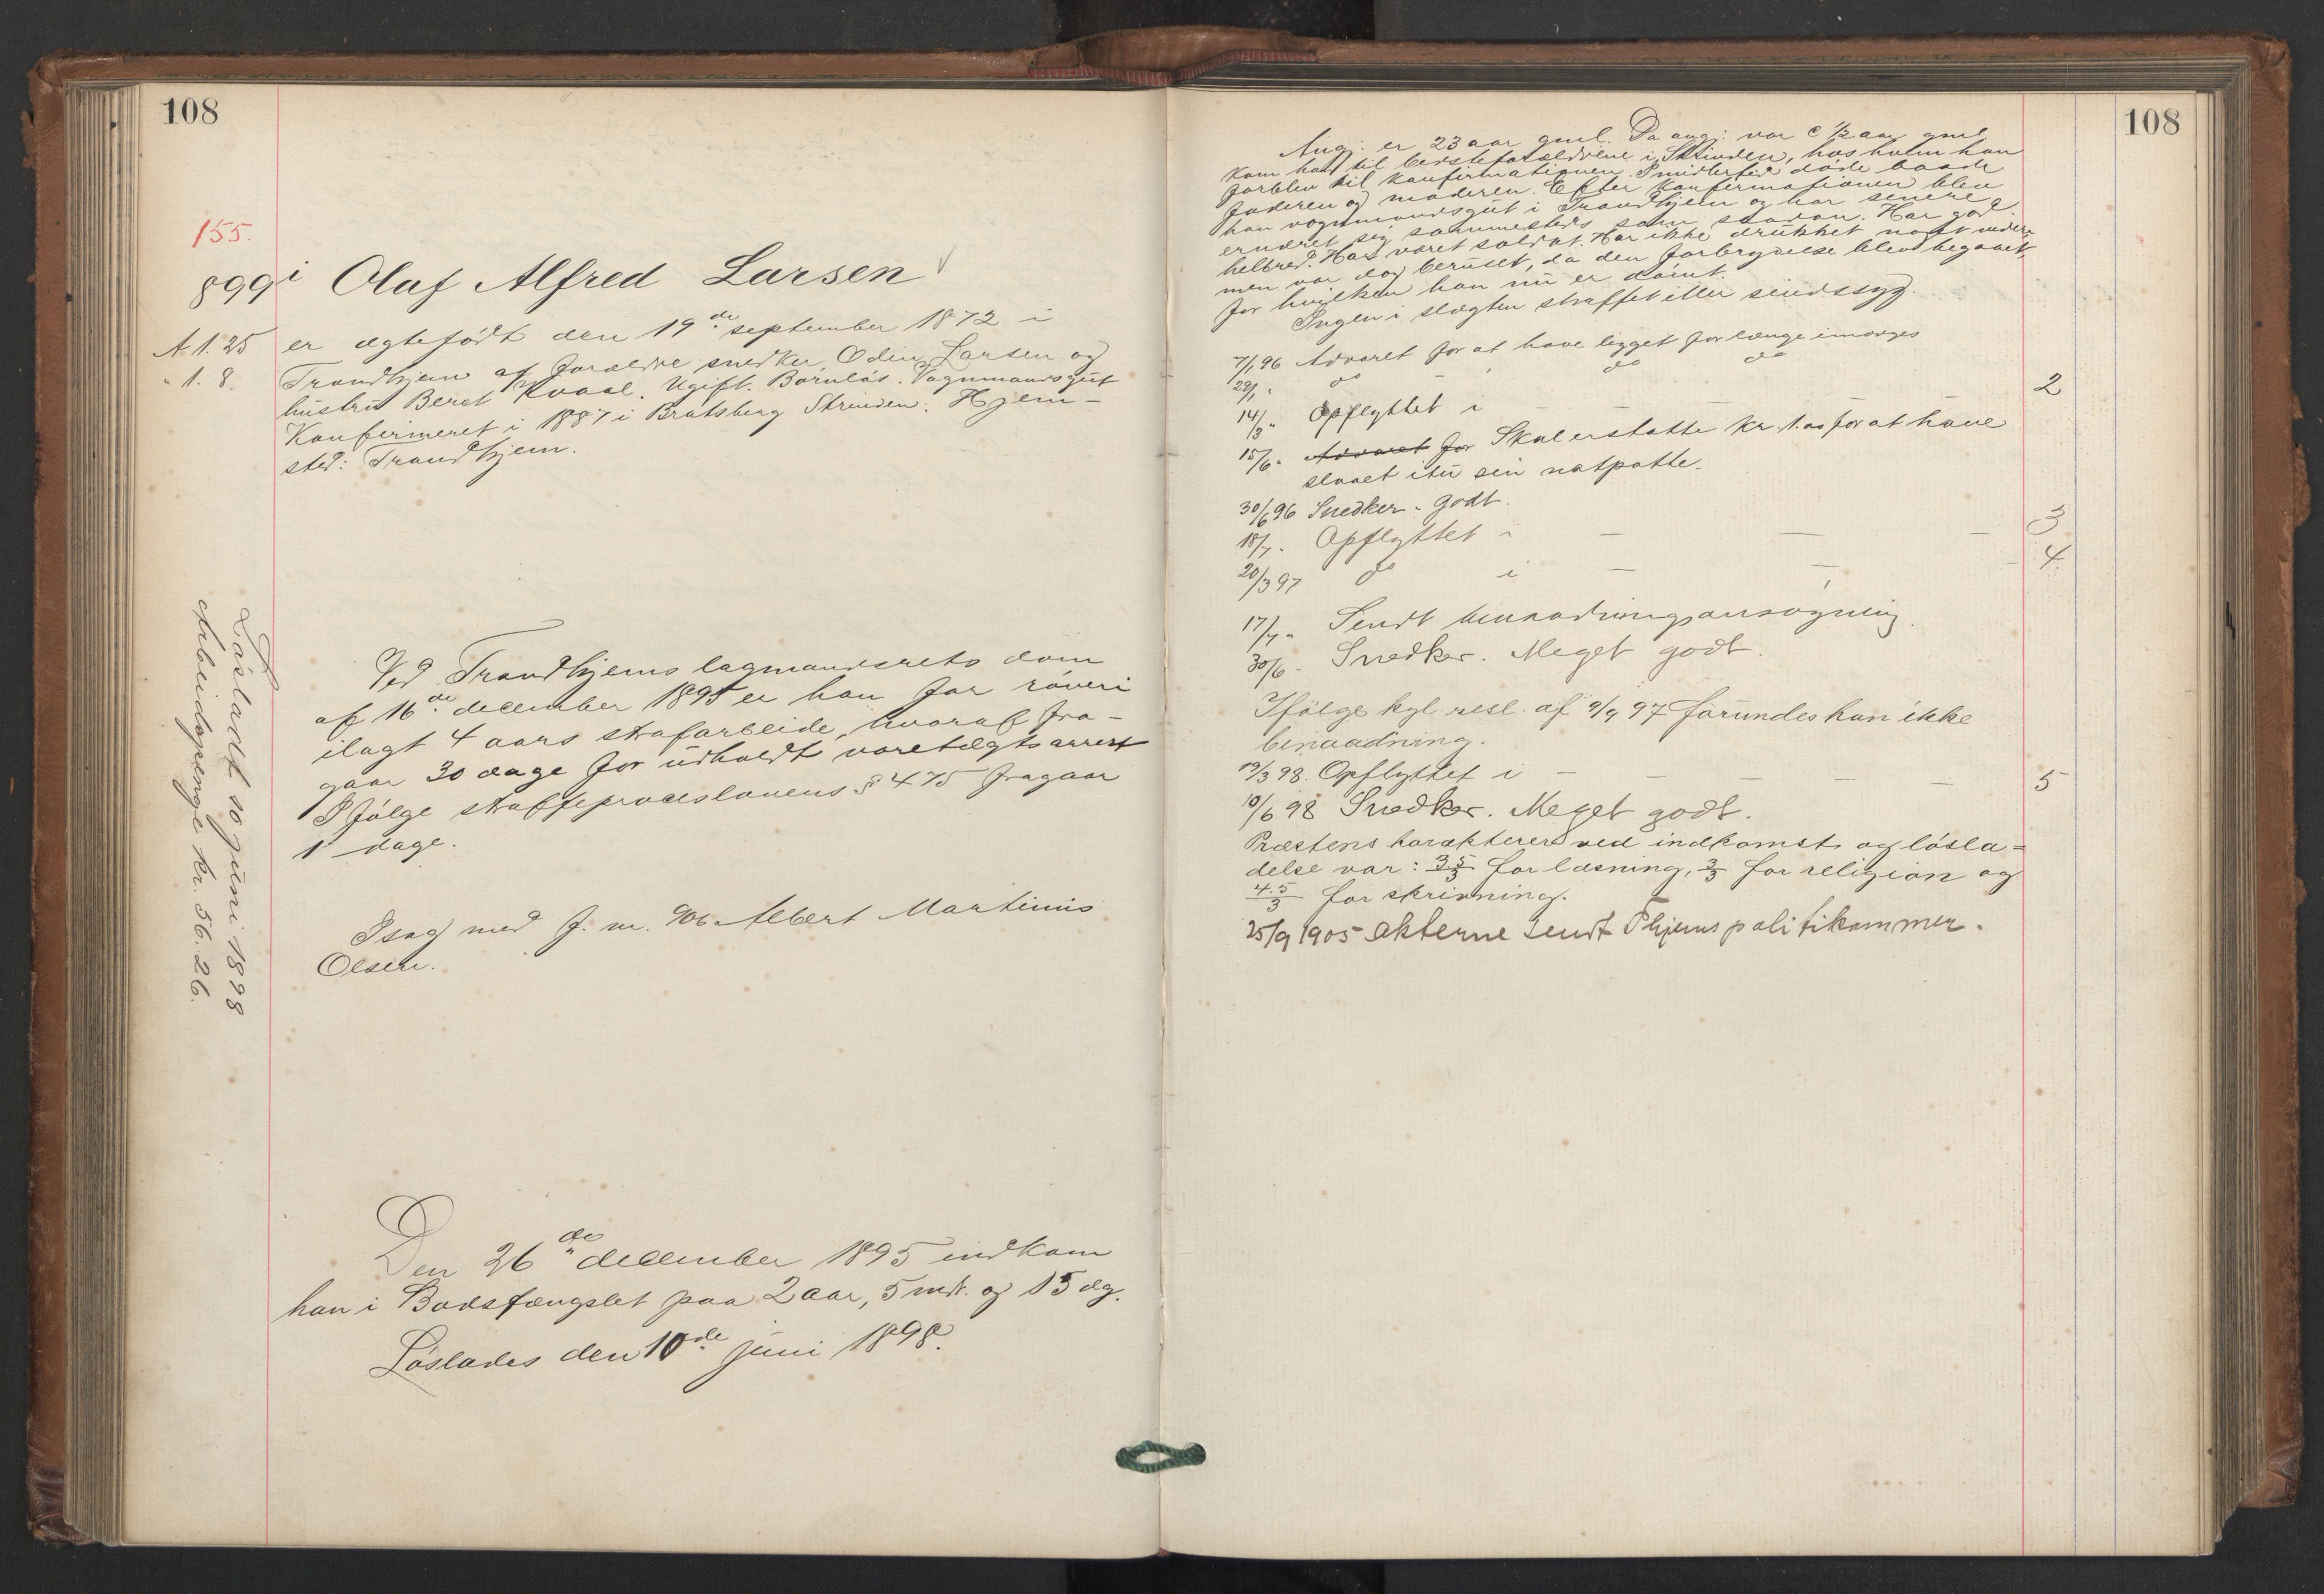 108
155.
899 i Olaf Alfred Larsen
A. 1. 25
" 1. 8.
er ægtefødt den 19de september 1872 i
Trondhjem af forældre snedker Odin Larsen og
hustru Beret Kvaal. Ugift. Barnløs. Vognmandsgut
Konfirmeret i 1887 i Bratsberg Strinden. Hjem-
sted: Trondhjem.
Løsladt 10 juni 1898
Arbeidspenge kr. 56.26.
Ved Trondhjems lagmandsrets dom
af 16de december 1895 er han for røveri
ilagt 4 aars strafarbeide, hvoraf fra-
gaar 30 dage for udholdt varetægtsarrest
Ifølge straffeproceslovens § 475 fragaar
1 dage.
I sag med f. nr. 906 Albert Martinus
Olsen.
Den 26de december 1895 indkom
han i Bodsfængslet paa 2 aar, 5 mdr. og 15 dg.
Løslades den 10de juni 1898.
108
Angj. er 23 aar gml. Da angj. var c 1/2 aar gml
kom han til bedsteforældrene i Strinden, hos hvem han
forblev til konfirmationen. Imidlertid døde baade
faderen og moderen. Efter konfirmationen blev
han vognmandsgut i Trondhjem og har senere
ernæret sig sammesteds som saadan. Har god
helbred. Har været soldat. Har ikke drukket noget videre
men var dog beruset, da den forbrydelse blev begaaet,
for hvilken han nu er dømt.
Ingen i slægten straffet eller sindssyg.
7/1 96 Advaret for at have ligget for længe imorges
29/1 " do do do
14/3 " Opflyttet i — — — 2
15/6 " Advaret for Skal erstatte kr. 1.00 for at have
slaaet itu sin natpotte.
30/6 96 Snedker. Godt.
18/7 " Opflyttet i — — — 3
20/3 97 do i — — — 4
17/7 " Sendt benaadningsansøgning.
30/6 - Snedker. Meget godt.
Ifølge kgl. resl. af 9/9 97 forundes han ikke
benaadning.
19/3 98. Opflyttet i — — — — — 5
10/6 98 Snedker. Meget godt.
Præstens karakterer ved indkomst og løsla=
delse var: 3.5/3 for læsning, 3/3 for religion og
4.5/3 for skrivning.
25/9 1905 Akterne sendt Thjems politikammer.